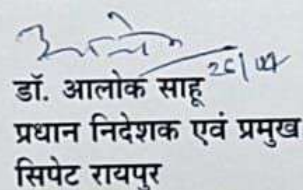 26/04
डॉ. आलोक साहू
प्रधान निदेशक एवं प्रमुख
सिपेट रायपुर